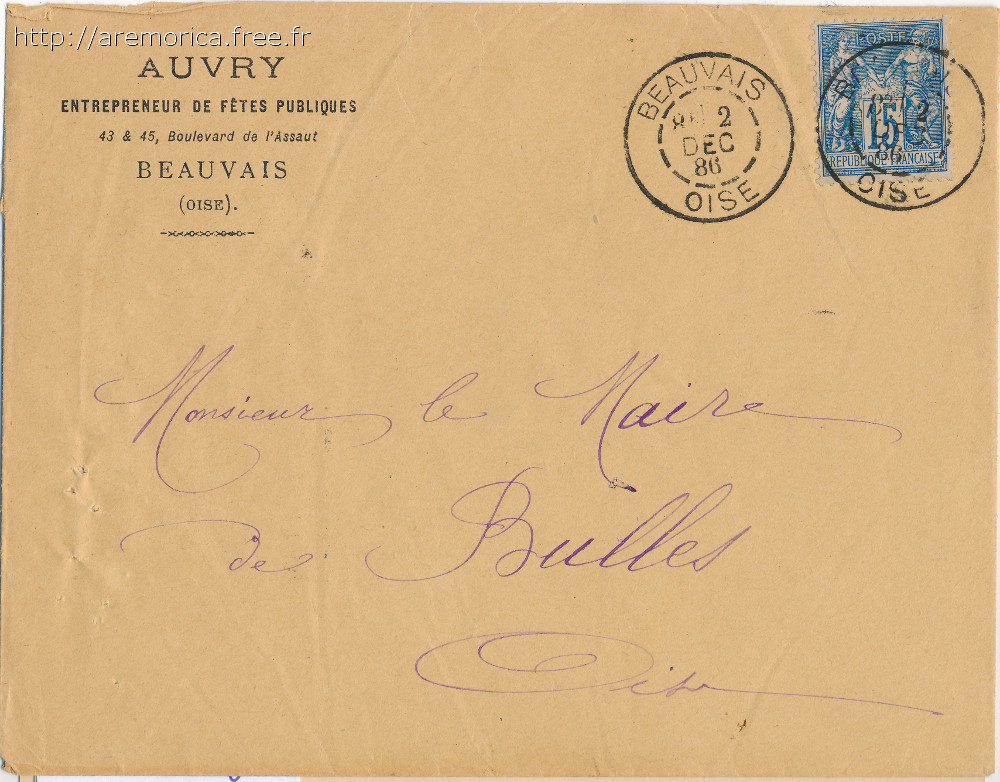 http://aremorica.free.fr
AUVRY
ENTREPRENEUR DE FÊTES PUBLIQUES
43 & 45, Boulevard de l'Assaut
BEAUVAIS
(OISE).
BEAUVAIS
2
DEC
86
OISE
POSTE
15
REPUBLIQUE FRANÇAISE
2
86
OISE
Monsieur le Maire
de Bulles
Oise